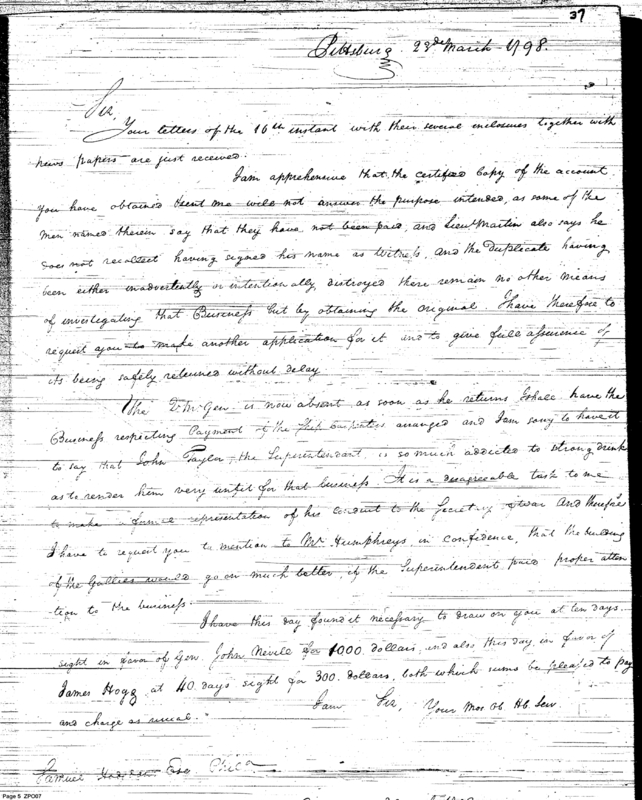 37
Pittsburg 23d March 1798.
Sir,
Your letters of the 16th instant with their several enclosures together with
news papers are just received.
I am apprehensive that the certified Copy of the account
you have obtained & sent me will not answer the purpose intended, as some of the
men named therein say that they have not been paid, and Lieut Martin also says he
does not recollect having signed his name as Witness, and the Duplicate having
been either inadvertently or intentionally distroyed there remain no other means
of investigating that Business but by obtaining the original. I have therefore to
request you to make another application for it and to give full assurence of
its being safely returned without delay
The Dr Mr Genl is now absent as soon as he returns I shall have the
Business respecting Payment of the Ship Carpenters arranged and I am sorry to have it
to say that John Taylor, the Superintendant, is so much addicted to strong drink
as to render him very unfit for that business. It is a disagreeable task to me
to make a formal representation of his conduct to the Secretary of War and therefore
I have to request you to mention to Mr Humphreys in confidence, that the building
of the Gallies would go on much better if the Superintendent paid proper atten
tion to the business.
I have this day found it necessary to draw on you at ten days
sight in favor of Gen. John Nevill for 1000 dollars, and also this day in favor of
James Hogg at 40 days sight for 300 dollars, both which sums be pleased to pay
and charge as usual.
I am Sir, Your Mos Ob Hb Serv
Samuel Hodgdon Esq Phila
Page 5 ZPO07